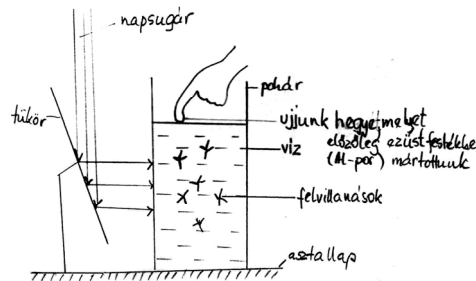 napsugár
tükör
pohár
ujjunk hegyét, melyet
előzőleg ezüstfestékbe
víz
(Al-por) mártottunk
felvillanások
asztallap